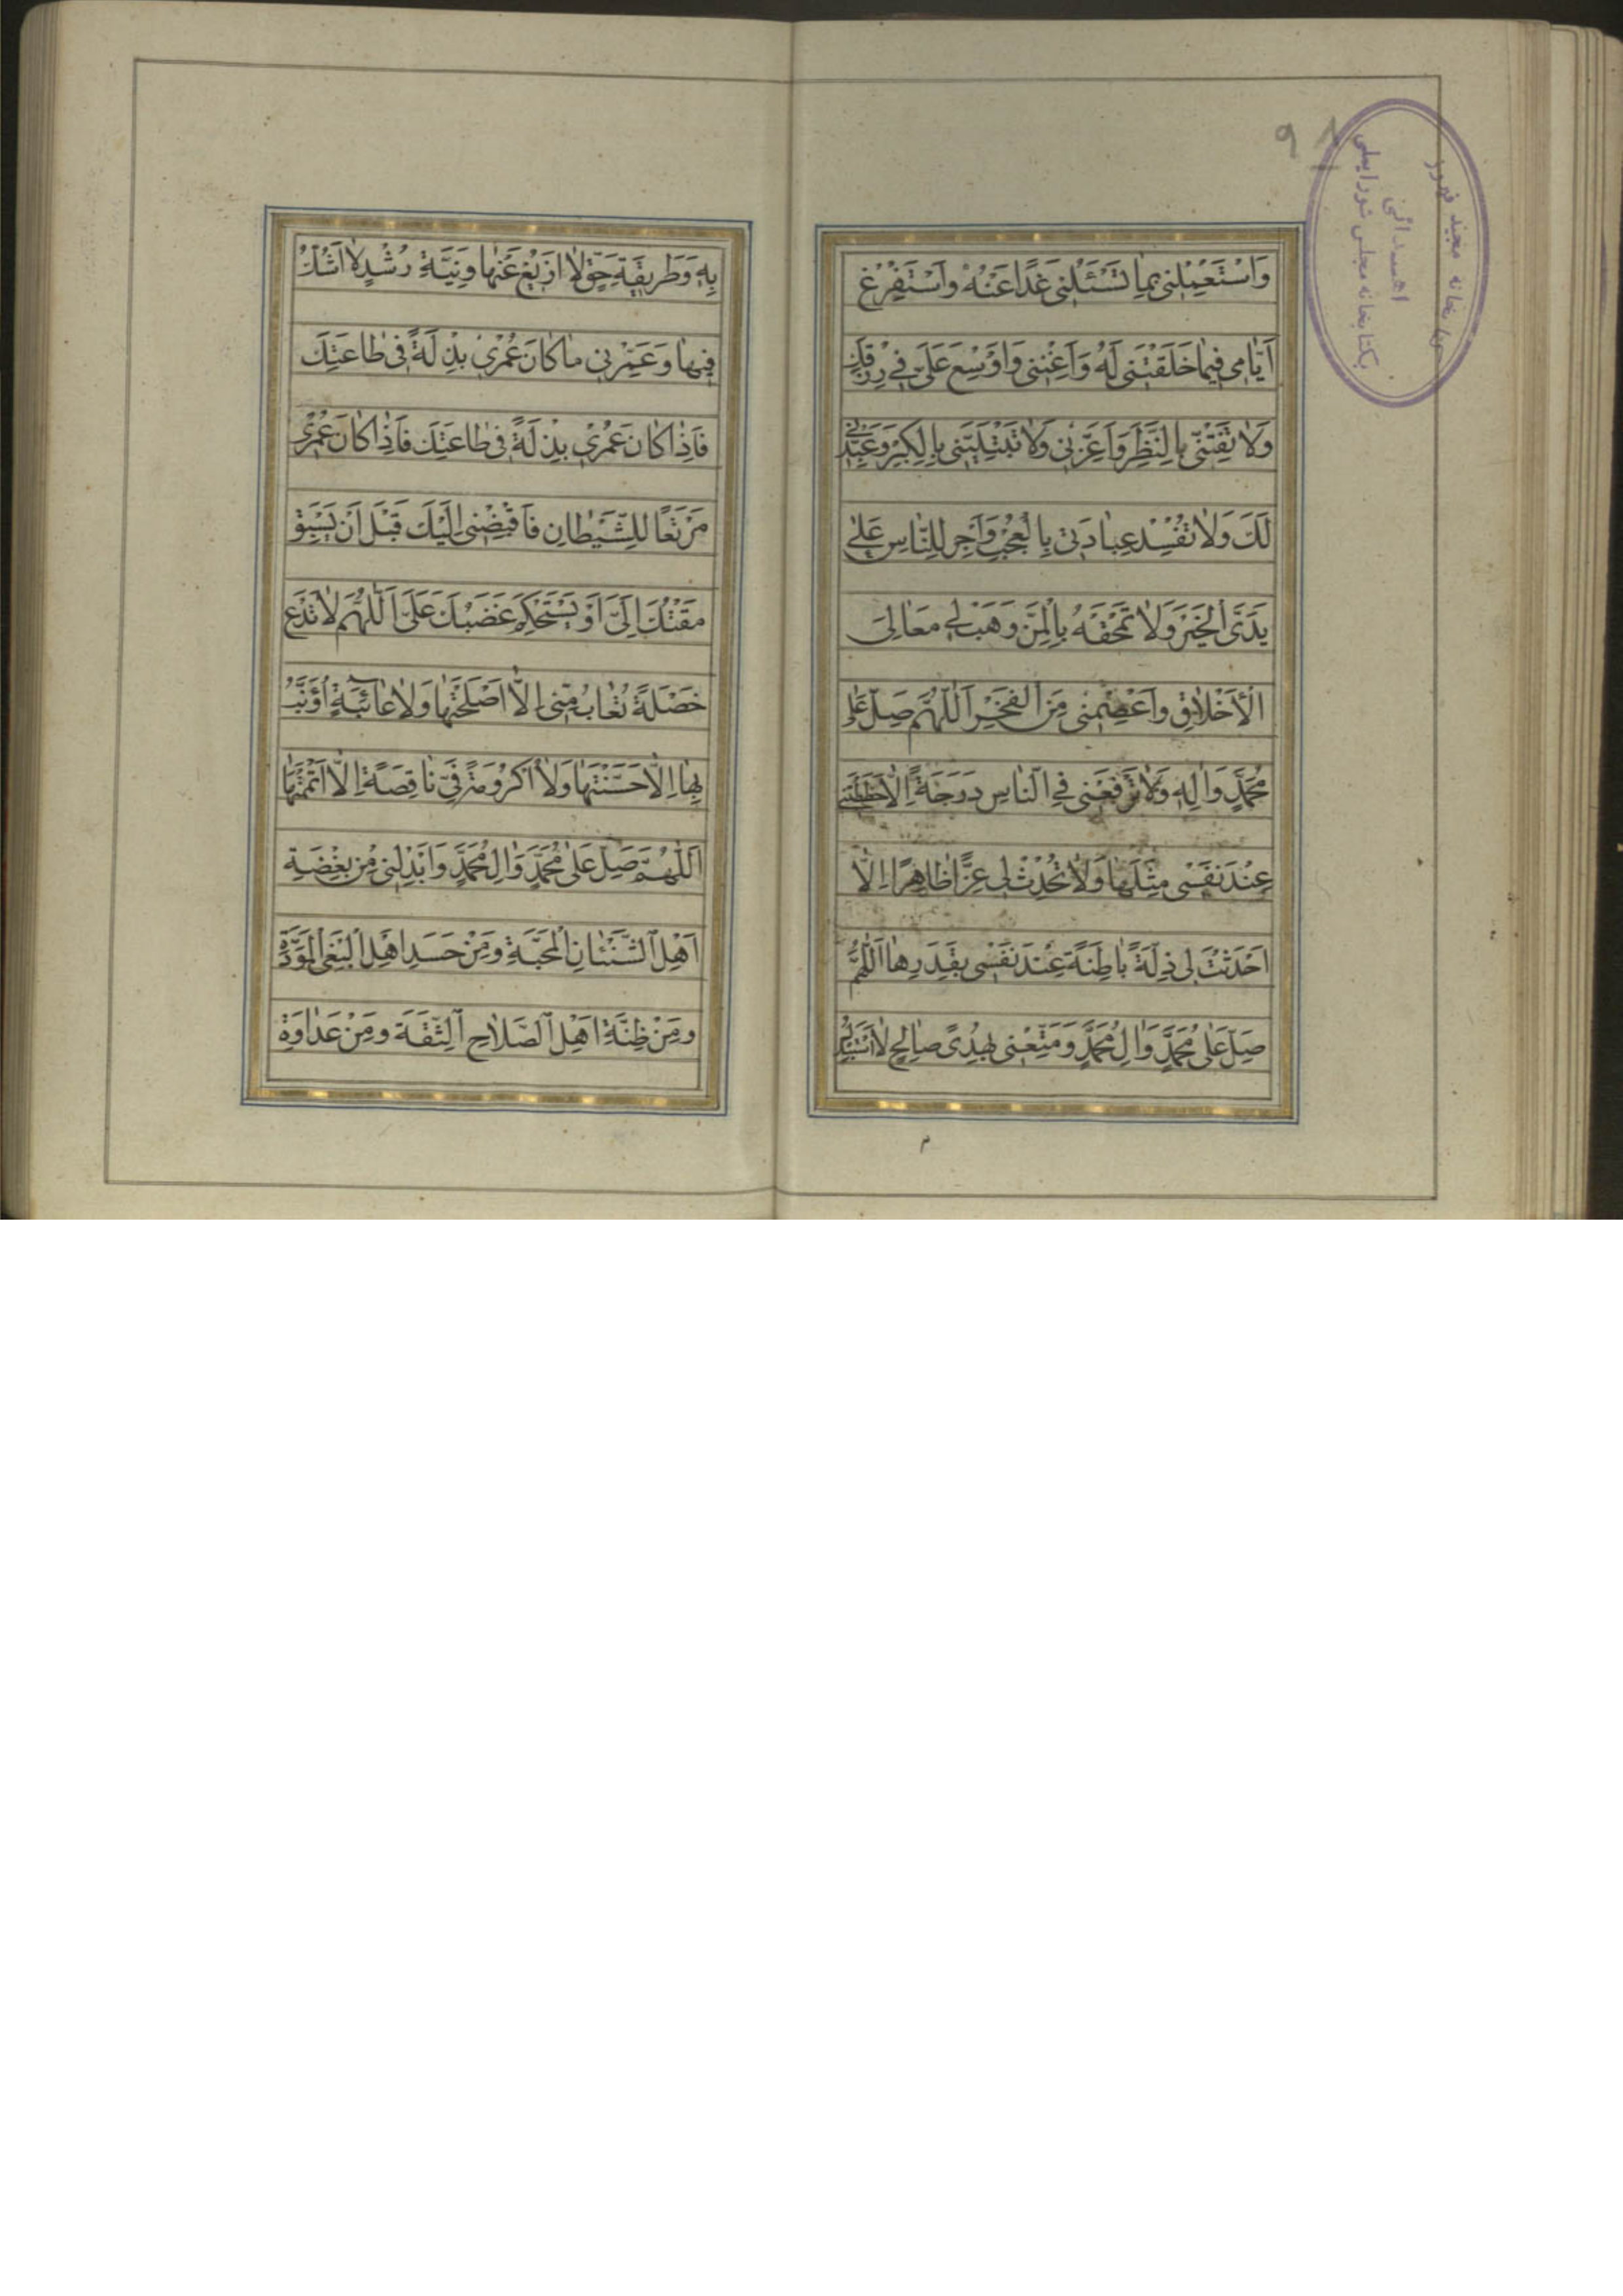 وَاسْتَعْمِلْنی بِمٰا تَسْئَلُنی غَدًا عَنْهُ وَاسْتَفْرِغْ
اَیّٰامی فیمٰا خَلَقْتَنی لَهُ وَاَغْنِنی وَاَوْسِعْ عَلَیَّ فی رِزْقِكَ
وَلٰا تَفْتِنّی بِالنَّظَرِ وَاَعِزَّنی وَلٰا تَبْتَلِیَنّی بِالْكِبْرِ وَعَبِّدْنی
لَكَ وَلٰا تُفْسِدْ عِبٰادَتی بِالْعُجْبِ وَاَجْرِ لِلنّٰاسِ عَلٰی
یَدَیَّ الْخَیْرَ وَلٰا تَمْحَقْهُ بِالْمَنِّ وَهَبْ لی مَعٰالِیَ
الْاَخْلٰاقِ وَاعْصِمْنی مِنَ الْفَخْرِ اَللّٰهُمَّ صَلِّ عَلٰی
مُحَمَّدٍ وَاٰلِهِ وَلٰا تَرْفَعْنی فِی النّٰاسِ دَرَجَةً اِلّٰا حَطَطْتَنی
عِنْدَ نَفْسی مِثْلَهٰا وَلٰا تُحْدِثْ لی عِزًّا ظٰاهِرًا اِلّٰا
اَحْدَثْتَ لی ذِلَّةً بٰاطِنَةً عِنْدَ نَفْسی بِقَدَرِهٰا اَللّٰهُمَّ
صَلِّ عَلٰی مُحَمَّدٍ وَاٰلِ مُحَمَّدٍ وَمَتِّعْنی بِهُدًی صٰالِحٍ لٰا اَسْتَبْدِلُ
بِهِ وَطَریقَةِ حَقٍّ لٰا اَزیغُ عَنْهٰا وَنِیَّةِ رُشْدٍ لٰا اَشُكُّ
فیهٰا وَعَمِّرْنی مٰا كٰانَ عُمْری بِذْلَةً فی طٰاعَتِكَ
فَاِذٰا كٰانَ عُمْری بِذْلَةً فی طٰاعَتِكَ فَاِذٰا كٰانَ عُمْری
مَرْتَعًا لِلشَّیْطٰانِ فَاقْبِضْنی اِلَیْكَ قَبْلَ اَنْ یَسْبِقَ
مَقْتُكَ اِلَیَّ اَوْ یَسْتَحْكِمَ غَضَبُكَ عَلَیَّ اَللّٰهُمَّ لٰا تَدَعْ
خَصْلَةً تُعٰابُ مِنّی اِلّٰا اَصْلَحْتَهٰا وَلٰا عٰائِبَةً اُؤَنَّبُ
بِهٰا اِلّٰا حَسَّنْتَهٰا وَلٰا اُكْرُومَةً فِیَّ نٰاقِصَةً اِلّٰا اَتْمَمْتَهٰا
اَللّٰهُمَّ صَلِّ عَلٰی مُحَمَّدٍ وَاٰلِ مُحَمَّدٍ وَاَبْدِلْنی مِنْ بِغْضَةِ
اَهْلِ الشَّنَئٰانِ الْمَحَبَّةَ وَمِنْ حَسَدِ اَهْلِ الْبَغْیِ الْمَوَدَّةَ
وَمِنْ ظِنَّةِ اَهْلِ الصَّلٰاحِ الثِّقَةَ وَمِنْ عَدٰاوَةِ
كتابخانه مجید فیروز
اهدائی
بكتابخانه مجلس شورایملی